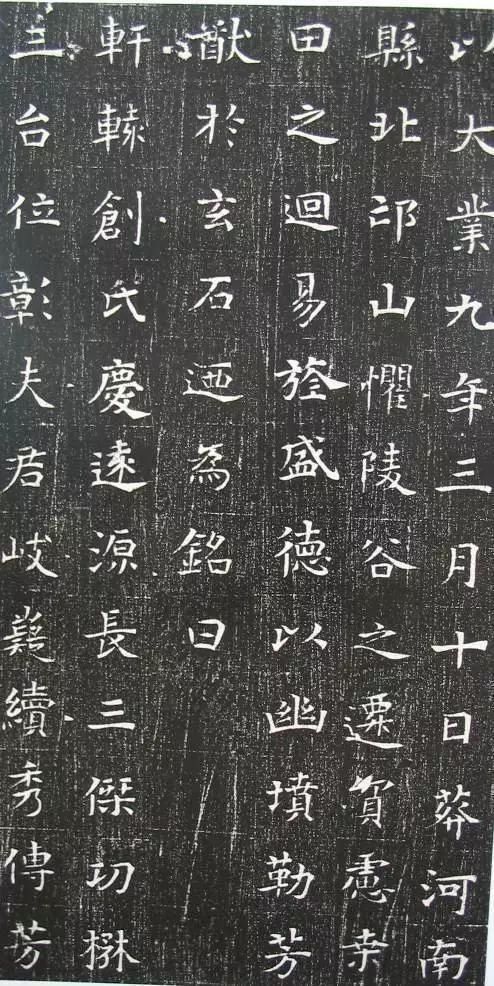 以大業九年三月十日葬河南
縣北邙山懼陵谷之遷貿慮桒
田之迴易旌盛德以幽墳勒芳
猷於玄石迺為銘曰
軒轅創氏慶遠源長三傑功楙
三台位彰夫君岐嶷續秀傳芳